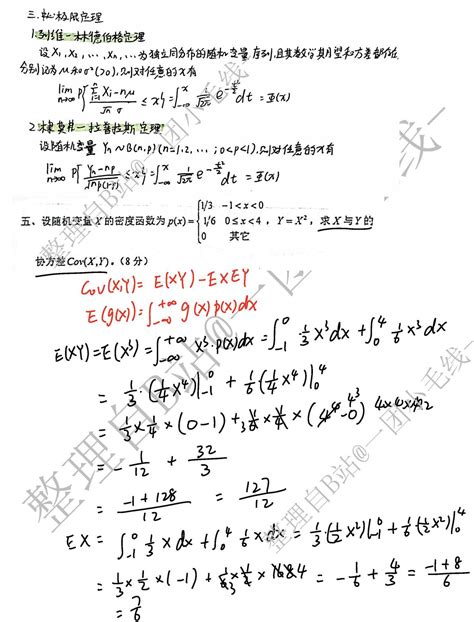 三.中心极限定理
1.列维—林德伯格定理
设X₁,X₂,…,Xₙ,…为独立同分布的随机变量序列,且其数学期望和方差都存在,
分别记为μ和σ²(>0),则对任意的x有
lim n→∞ P{(Σᵢ₌₁ⁿ Xᵢ-nμ)/(√n σ) ≤x}=∫_{-∞}^{x} 1/√2π e^{-t²/2}dt=Φ(x)
2.棣莫弗—拉普拉斯定理
设随机变量Yₙ~B(n,p)(n=1,2,…;0<p<1),则对任意的x有
lim n→∞ P{(Yₙ-np)/√(np(1-p)) ≤x}=∫_{-∞}^{x} 1/√2π e^{-t²/2}dt=Φ(x)
五、设随机变量 X 的密度函数为 p(x)= { 1/3 -1<x<0
1/6 0≤x<4 , Y=X², 求 X 与 Y 的
0 其它
协方差 Cov(X,Y)。(8 分)
Cov(X,Y)= E(XY)-EXEY
E(g(x))=∫_{-∞}^{+∞} g(x)p(x)dx
E(XY)=E(X³)=∫_{-∞}^{+∞} x³·p(x)dx=∫_{-1}^{0} 1/3 x³dx+∫_{0}^{4} 1/6 x³dx
= 1/3·(1/4 x⁴)|_{-1}^{0} + 1/6(1/4 x⁴)|_{0}^{4}
= 1/3×1/4×(0-1)+
= -1/12 + 32/3
= (-1+128)/12 = 127/12
EX = ∫_{-1}^{0} 1/3 x dx+∫_{0}^{4} 1/6 x dx = 1/3(1/2 x²)|_{-1}^{0}+1/6(1/2 x²)|_{0}^{4}
= 1/3×1/2×(-1)+ = -1/6+4/3 = (-1+8)/6
= 7/6
整理自B站@一团小毛线